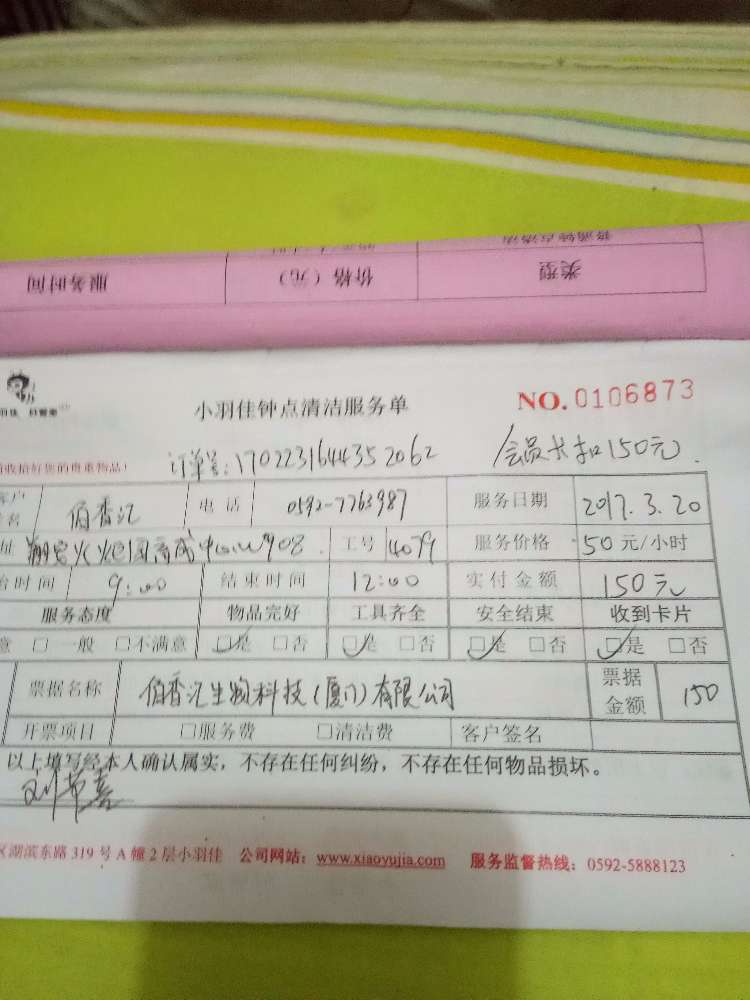 普通钟点清洁
类型 价格（元） 服务时间
小羽佳钟点清洁服务单 NO.0106873
收拾好您的贵重物品！ 订单号：170223164435 2062 会员卡扣150元
佰香汇 电话 0592-7763987 服务日期 2017.3.20
工号 4079 服务价格 50元/小时
时间 9:00 结束时间 12:00 实付金额 150元
服务态度 物品完好 工具齐全 安全结束 收到卡片
意 □一般 □不满意 ☑是 □否 ☑是 □否 ☑是 □否 ☑是 □否
票据名称 佰香汇生物科技（厦门）有限公司 票据金额 150
开票项目 □服务费 □清洁费 客户签名
以上填写经本人确认属实，不存在任何纠纷，不存在任何物品损坏。
区湖滨东路319号A幢2层小羽佳 公司网站：www.xiaoyujia.com 服务监督热线：0592-5888123